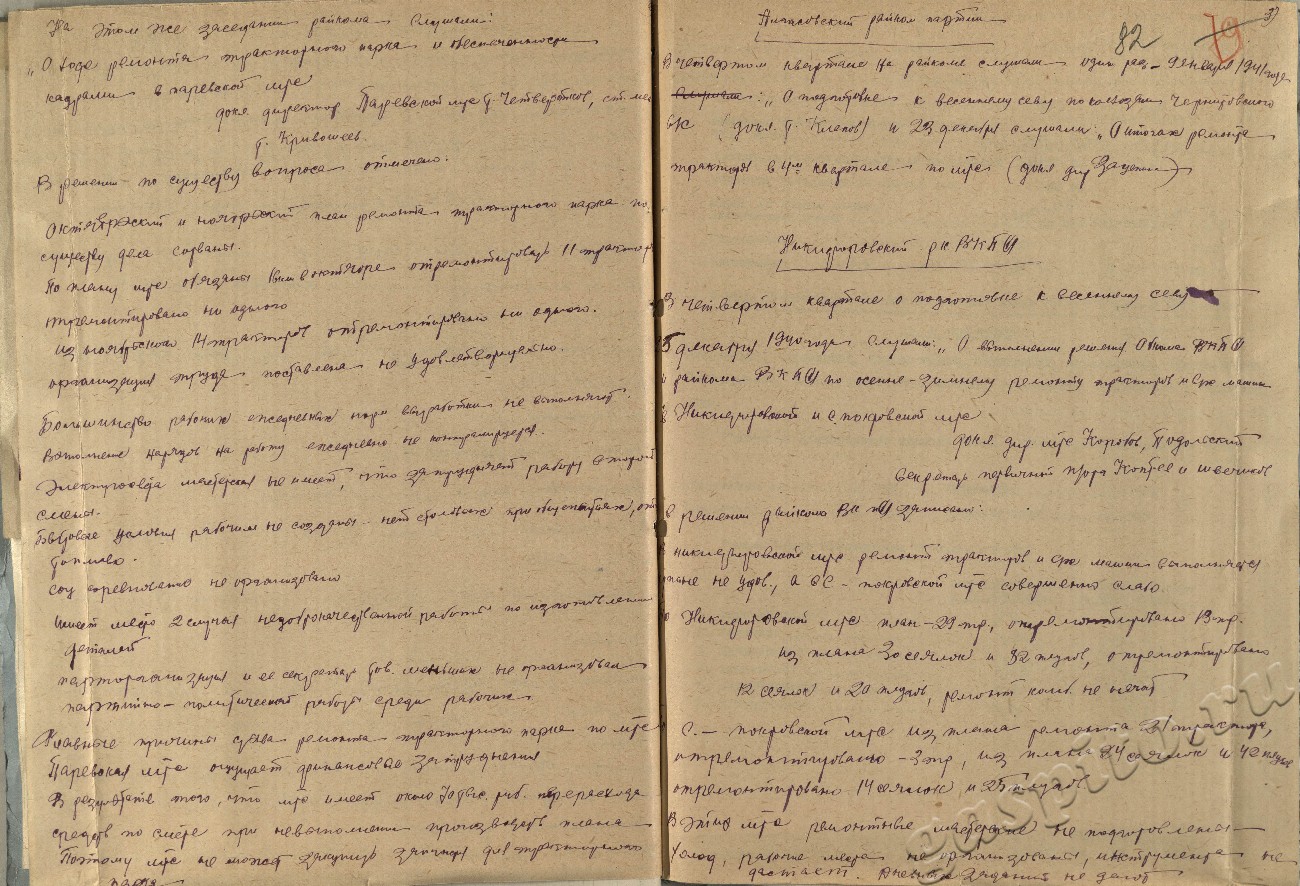 На этом же заседании райкома слушали:
"О ходе ремонта тракторного парка и обеспеченности
кадрами в паревской мтс
докл директор Паревской мтс т. Четвертков, ст. мех
т. Кривошеев.
В решении по существу вопроса отмечено:
Октябрьский и ноябрьский план ремонта тракторного парка по
существу дела сорваны.
По плану мтс обязаны были в октябре отремонтировать 11 тракторов
отремонтировано ни одного
из ноябрьского 14 тракторов отремонтировано ни одного.
организация труда поставлена не удовлетворительно.
Большинство рабочих ежедневных норм выработки не выполняют.
Выполнение нарядов на работу ежедневно не контролируется.
Электросвета мастерская не имеет, что затрудняет работу второй
смены.
Бытовые условия рабочим не созданы - нет столовой, при общежитиях,
топлива.
соц соревнование не организовано
Имеет место 2 случая недоброкачественной работы по изготовлению
деталей
парторганизация и ее секретарь тов. меньших не организовал
партийно-политической работы среди рабочих.
Главные причины срыва ремонта тракторного парка по мтс
Паревская мтс ощущает финансовые затруднения
В результате того, что мтс имеет около 70 тыс. руб. перерасхода
средств по смете при невыполнении производств. плана
Поэтому мтс не может закупить запчасти для тракторного
парка
82 79 37
райком партии
В четвертом квартале на райкоме слушали один раз - 9 января 1941 года
"О подготовке к весеннему севу по колхозам Чернитовского
с/с (докл. т. Клепов) и 23 декабря слушали: "О итогах ремонта
тракторов в 4м квартале по мтс (докл дир Зацепин)
Никифоровский рк ВКП(б)
В четвертом квартале о подготовке к весеннему севу
5 декабря 1940 года слушали: "О выполнении решения Обкома ВКП(б)
и райкома ВКП(б) по осенне-зимнему ремонту тракторов и с/х машин
в Никифоровской и с. покровской мтс
докл. дир. мтс Коробов, Подольский
секретарь первичной п/орг Коптев и
в решении райкома ВКП(б) записано:
В никифоровской мтс ремонт тракторов и с/х машин выполняется
крайне не удов., а в С-покровской мтс совершенно слабо.
по Никифоровской мтс план - 29 тр, отремонтировано 13 тр.
из плана 30 сеялок и 32 плугов, отремонтировано
12 сеялок и 20 плугов, ремонт комб. не начат
С.-покровской мтс из плана ремонта 21 трактора,
отремонтировано - 3 тр, из плана 24 сеялок и 42 плугов
отремонтировано 14 сеялок и 25 плугов.
В этих мтс ремонтные мастерские не подготовлены
холод, рабочие места не организованы, инструмента не
достает. Дневных заданий не дают